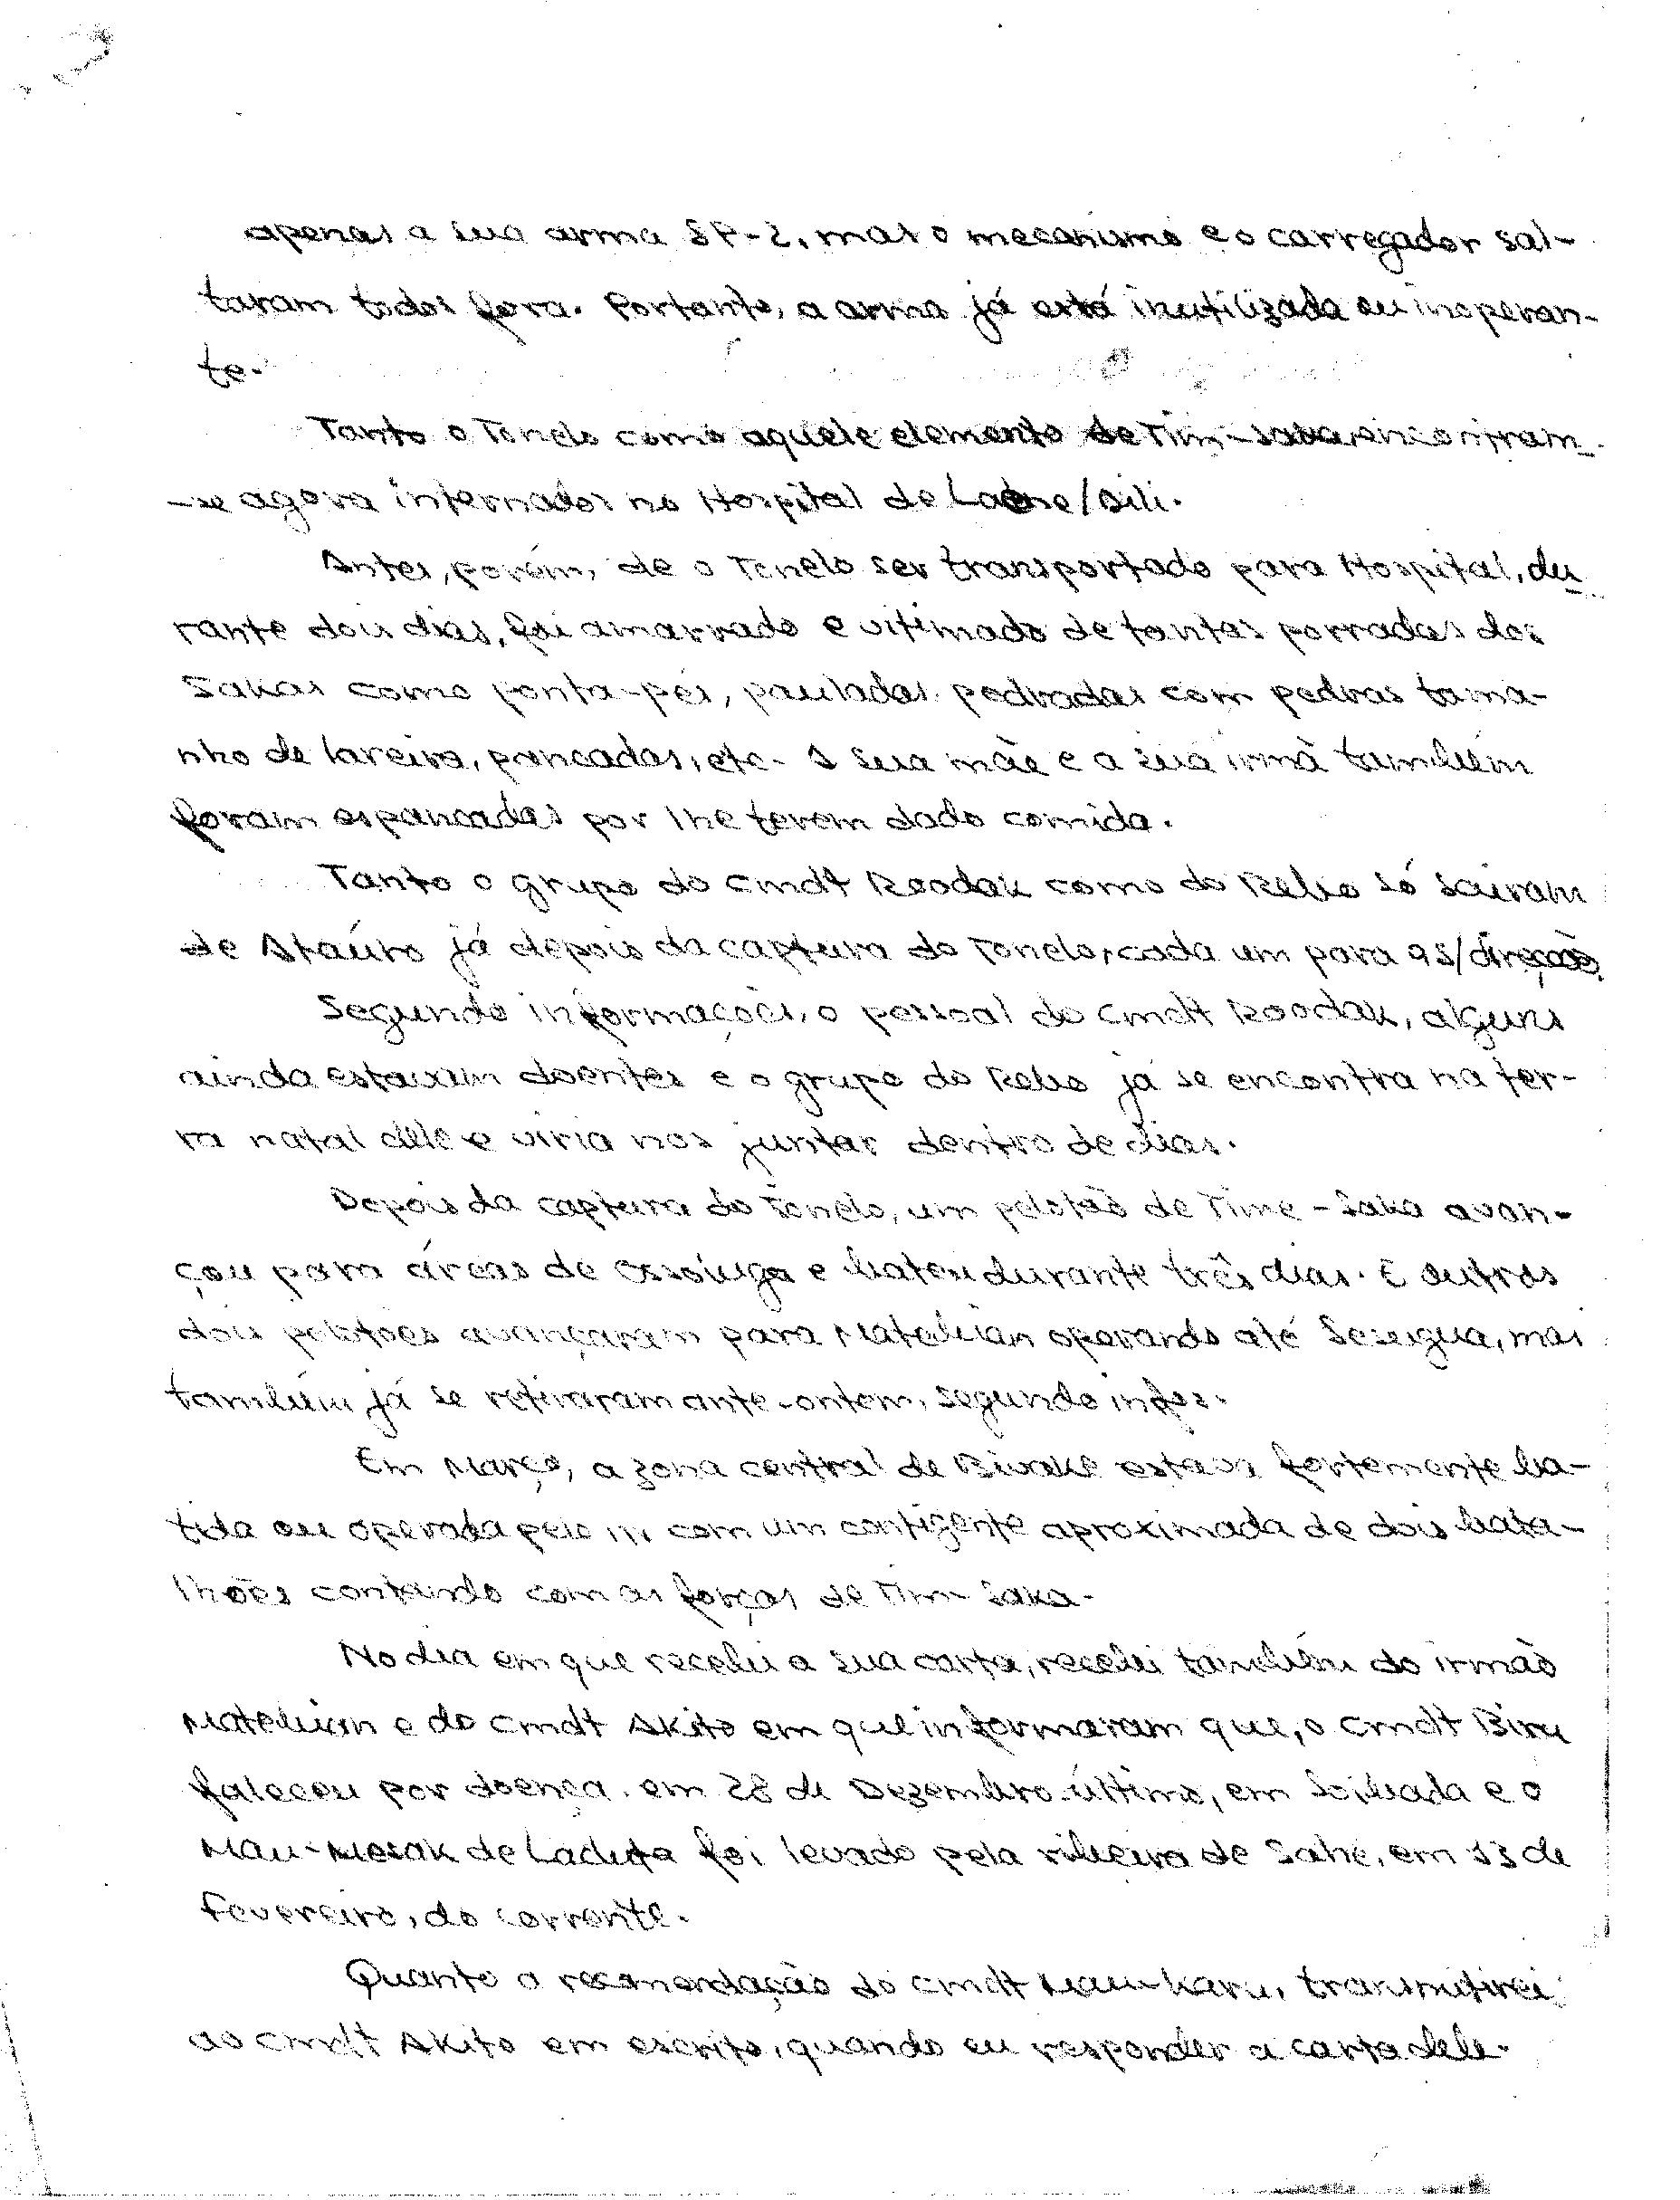 apenas a sua arma SP-2, mas o mecanismo e o carregador sal-
taram todos fora. Portanto, a arma já está inutilizada ou inoperan-
te.
Tanto o Tonelo como aquele elemento de Tim-Saka, encontram-
-se agora internados no Hospital de Lahne/Dili.
Antes, porém, de o Tonelo ser transportado para Hospital, du-
rante dois dias, foi amarrado e vitimado de tantas porradas dos
Sakas como ponta-pés, pauladas, pedradas com pedras tama-
nho de lareira, pancadas, etc. A sua mãe e a sua irmã também
foram espancadas por lhe terem dado comida.
Tanto o grupo do Cmdt Roodak como do Reko só sairam
de Ataúro já depois da captura do Tonelo, cada um para a s/direcção.
Segundo informações, o pessoal do Cmdt Roodak, alguns
ainda estavam doentes e o grupo do Reko já se encontra na ter-
ra natal dele e viria nos juntar dentro de dias.
Depois da captura do Tonelo, um pelotão de Time-Saka avan-
çou para áreas de Ossoiuga e bateu durante três dias. E outros
dois pelotões avançaram para Matebian operando até Seseigua, mas
também já se retiraram ante-ontem, segundo infos.
Em Março, a zona central de Bivake estava fortemente ba-
tida ou operada pelo in com um contigente aproximada de dois bata-
lhões contando com as forças de Tim-Saka.
No dia em que recebi a sua carta, recebi também do irmão
Matebian e do Cmdt Akito em que informaram que, o Cmdt Biru
faleceu por doença, em 28 de Dezembro último, em Soibada e o
Mau-Mesak de Lacluta foi levado pela ribeira de Sahe, em 13 de
Fevereiro, do corrente.
Quanto a recomendação do Cmdt Mau-Karu, transmitirei
ao Cmdt Akito em escrito, quando eu responder a carta dele.